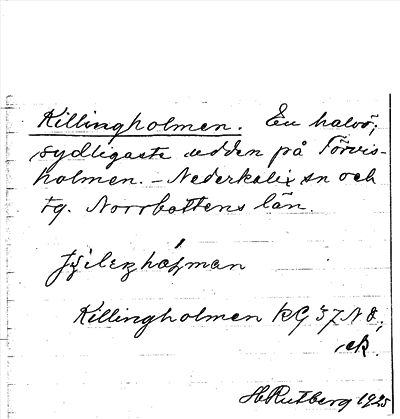 Killingholmen. En halvö;
sydligaste udden på Törvis-
holmen. – Nederkalix sn och
tg. Norrbottens län.
Killingholmen KG 37 NO;
ek.
H Rutberg 1925